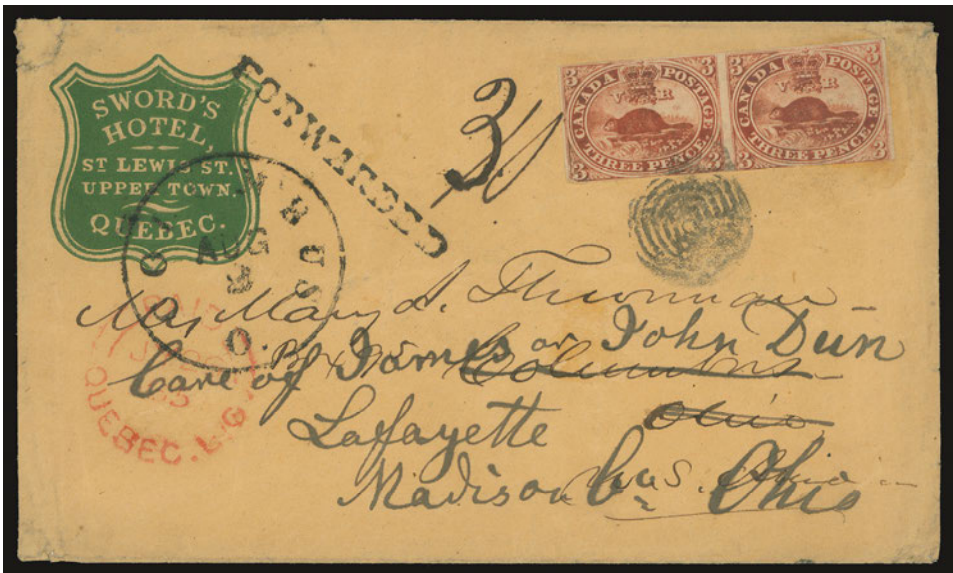 SWORD'S
HOTEL,
ST LEWIS ST.
UPPER TOWN.
QUEBEC.
FORWARDED
3
3 CANADA POSTAGE. 3
V R
3 THREE PENCE. 3
3 CANADA POSTAGE. 3
V R
3 THREE PENCE. 3
COLUMBUS O.
AUG
PAID
QUEBEC. L.C.
Mrs Mary A. Thurman
Care of James or John Dun
Columbus
Ohio
Lafayette
Madison Co Ohio
U.S.